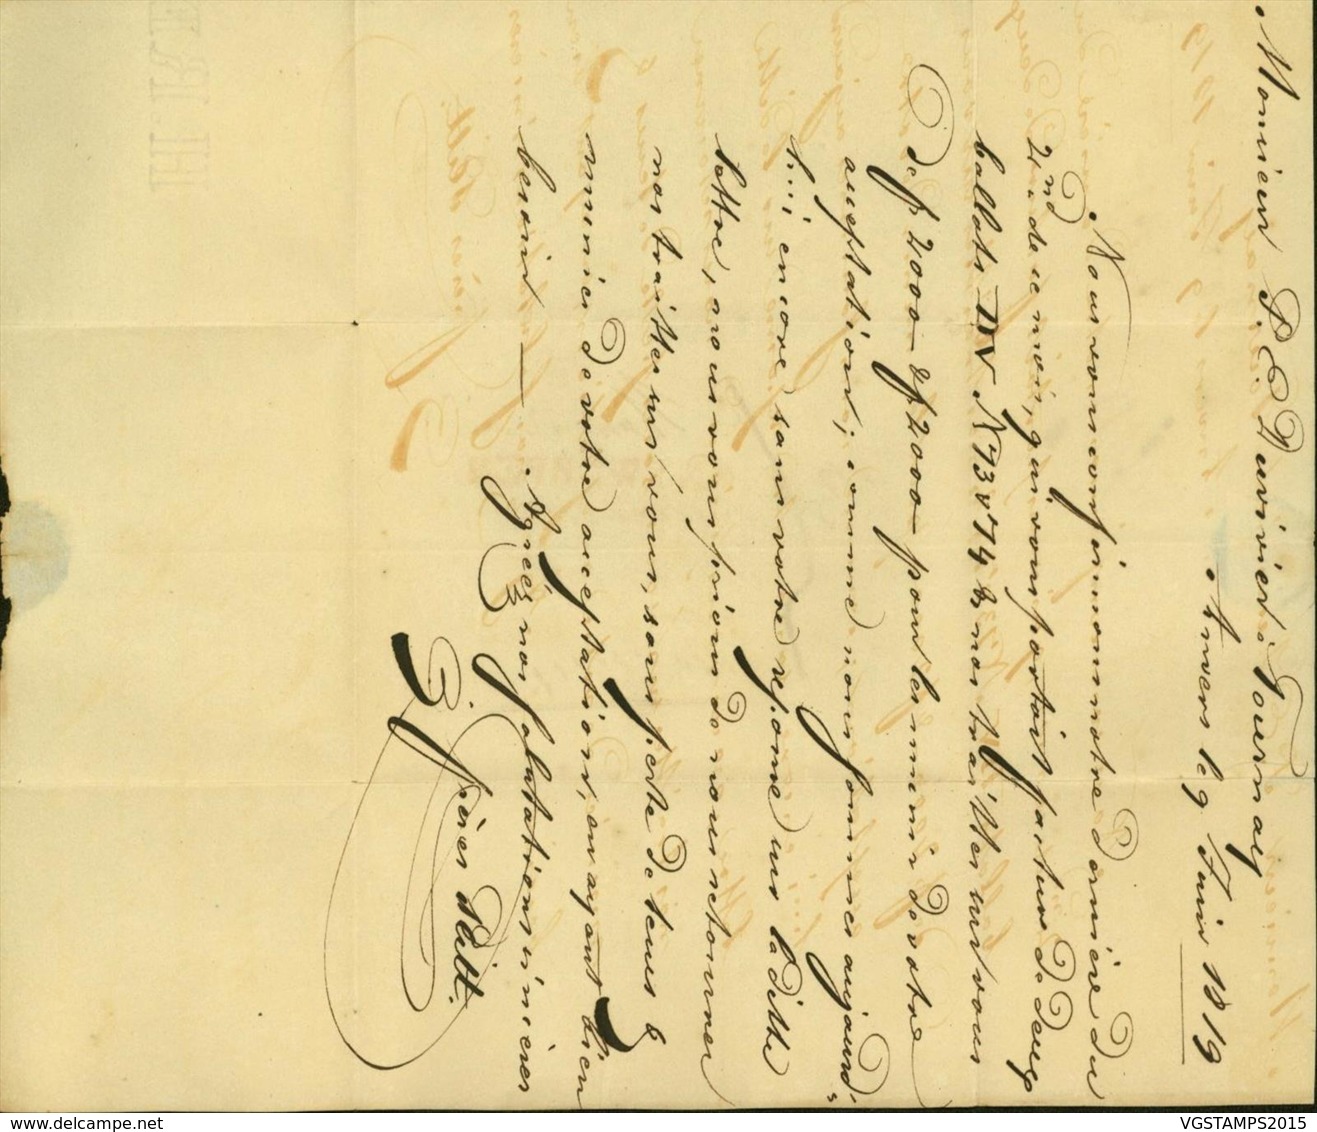 Monsieur P. C. Duvivier: Tournay
Anvers le 9 Juin 1819
Nous vous confirmons notre dernière du
2nd. de ce mois, qui vous portait facture de deux
ballots DV N 73 & 74 & nos traittes sur vous
De f 2000 & f 2000 pour les munir de votre
acceptation; comme nous sommes aujourd-
hui encore sans votre reponse sur la ditte
lettre, nous vous prions de nous retourner
nos traittes sur vous, sans perte de tems &
munies de votre acceptation, en ayant bien
besoin —
Agréez nos salutations sincères
frères
VGSTAMPS2015